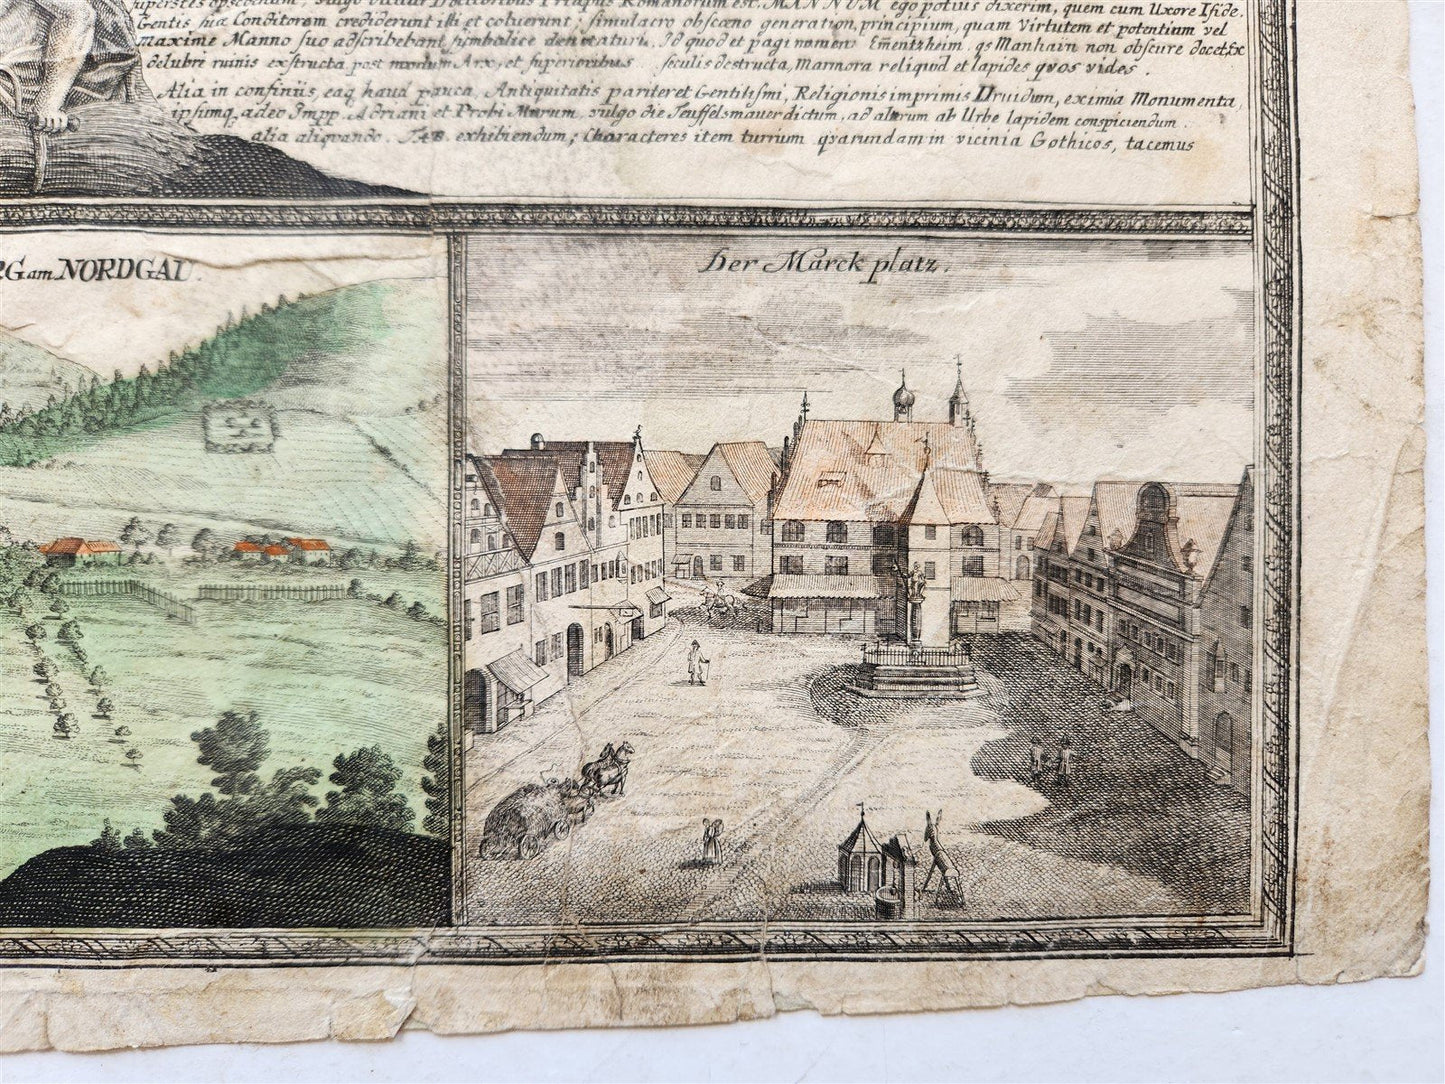 superstes obscoenum, vulgo dicitur Doctoribus Priapus Romanorum est. MANNUM ego potius dixerim, quem cum Uxore Iside.
Gentis suæ Conditorem crediderunt illi et coluerunt; simulacro obscæno generation, principium, quam Virtutem et potentium vel
maxime Manno suo adscribebant symbolice denotaturi. Id quod et pagi nomens Em̄entzheim, qs Manhain non obscure docet, Ex
delubri ruinis exstructa post modum Arx, et superioribus seculis destructa, Mannora reliquid et lapides qvos vides.
Alia in confiniis, eaq haud pauca, Antiquitatis pariter et Gentilismi, Religionis imprimis Druidum, eximia Monumenta,
ipsumq adeo Impp. Adriani et Probi Murum, vulgo die Teuffelsmauer dictum, ad alterum ab Urbe lapidem conspiciendum.
alia aliquando. TAB. exhibiendum; Characteres item turrium qvarundam in vicinia Gothicos, tacemus
RG am NORDGAU.
Der Marck platz.